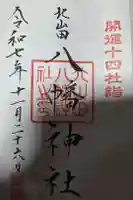 開運十四社詣
北山田
八幡神社
令和七年十一月二十六日